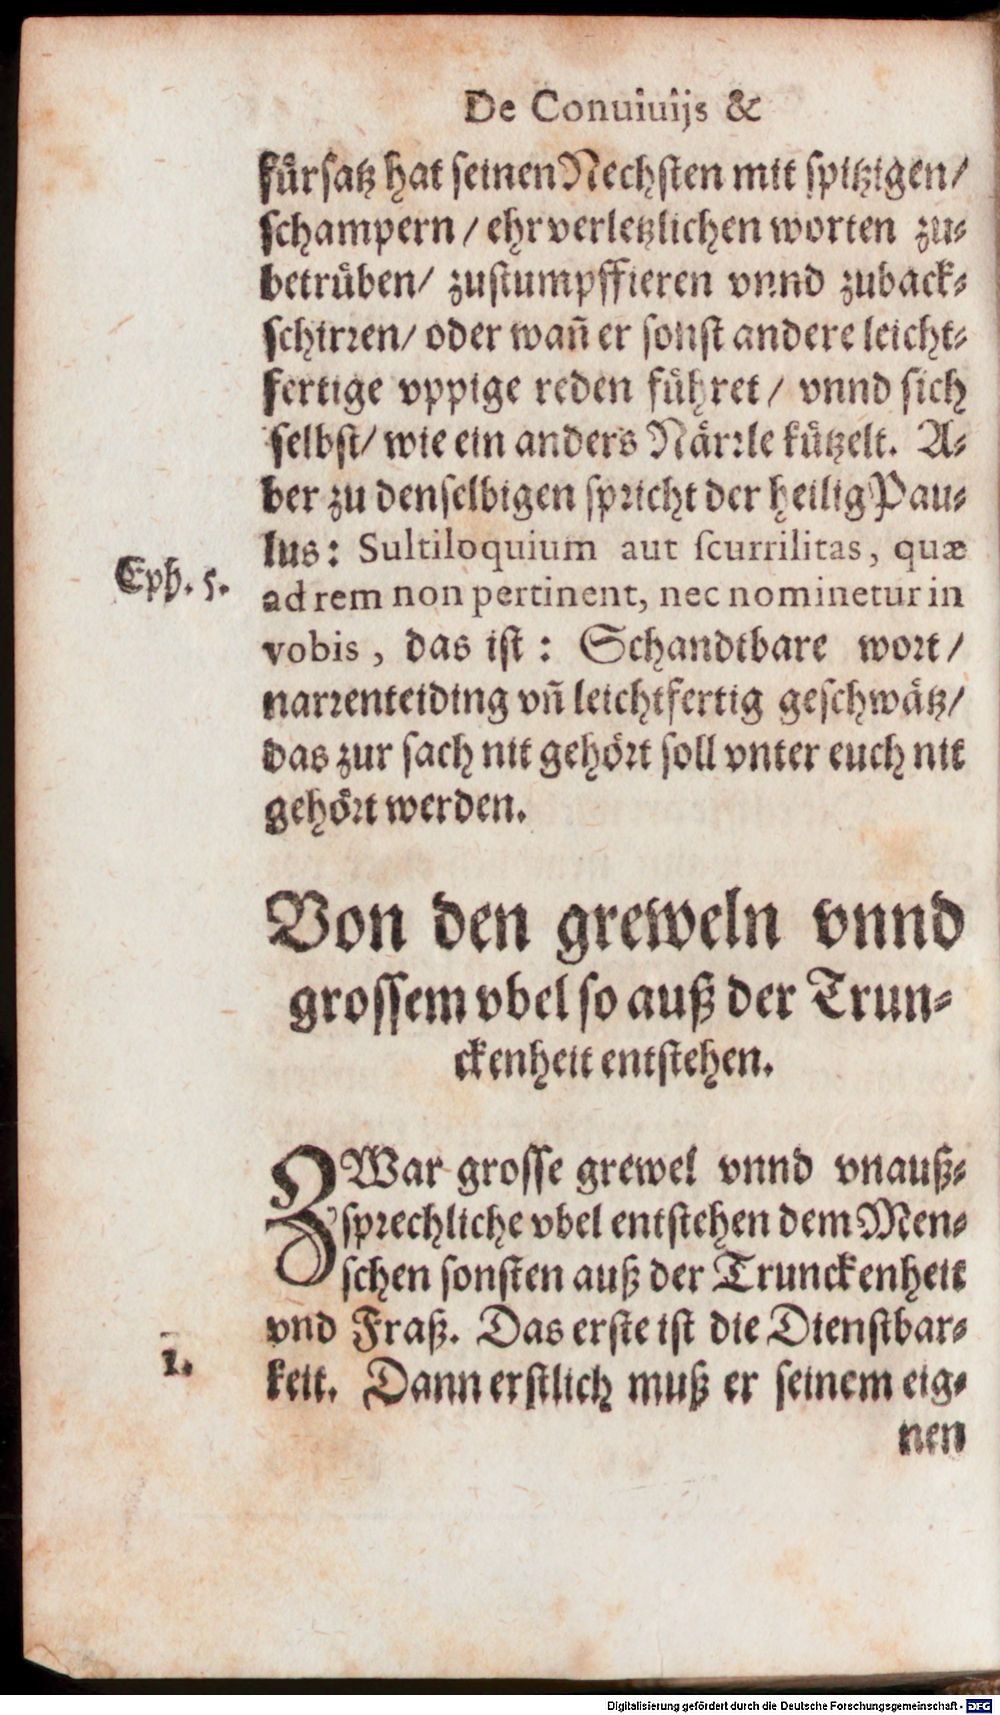 De Conuiuijs &
fürsatz hat seinen Nechsten mit spitzigen/
schampern / ehrverletzlichen worten zu-
betrüben/ zustumpffieren vnnd zuback-
schirren/ oder wañ er sonst andere leicht-
fertige vppige reden führet / vnnd sich
selbst/ wie ein anders Närrle kützelt. A-
ber zu denselbigen spricht der heilig Pau-
lus: Sultiloquium aut scurrilitas, quæ
Eph. 5.
ad rem non pertinent, nec nominetur in
vobis, das ist : Schandtbare wort/
narrenteiding vñ leichtfertig geschwätz/
das zur sach nit gehört soll vnter euch nit
gehört werden.
Von den greweln vnnd
grossem vbel so auß der Trun-
ckenheit entstehen.
ZWar grosse grewel vnnd vnauß-
sprechliche vbel entstehen dem Men-
schen sonsten auß der Trunckenheit
vnd Fraß. Das erste ist die Dienstbar-
1.
keit. Dann erstlich muß er seinem eig-
nen
Digitalisierung gefördert durch die Deutsche Forschungsgemeinschaft - DFG